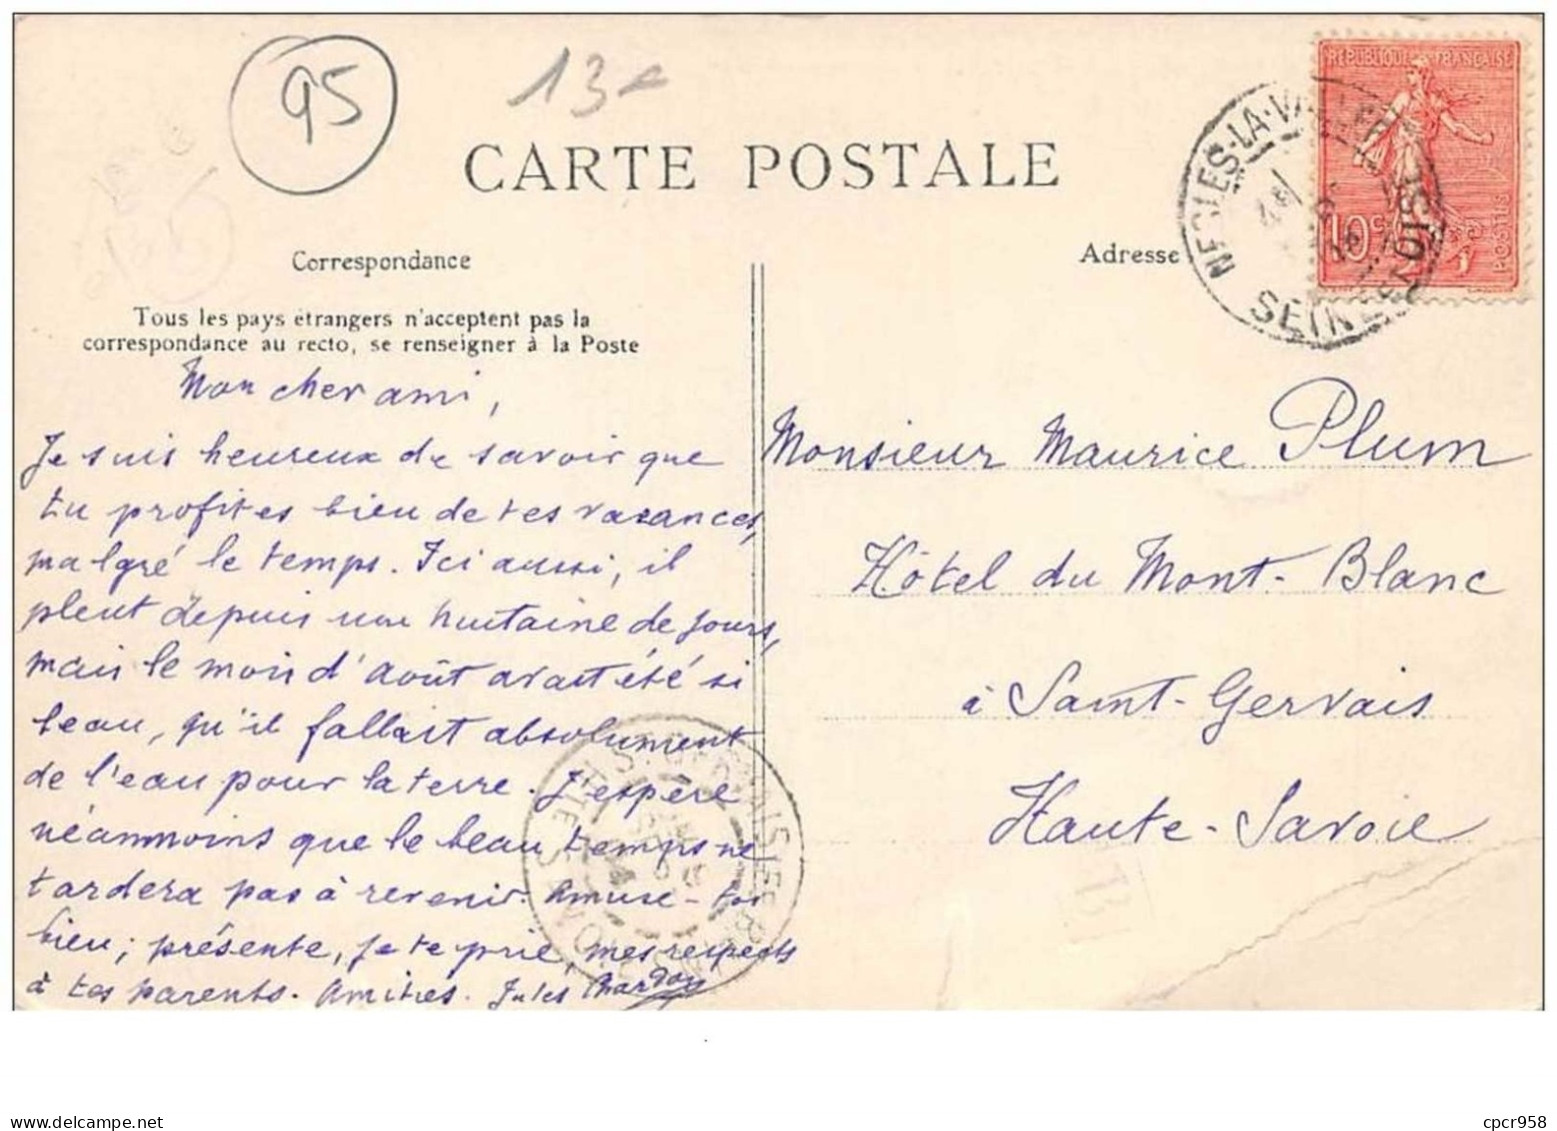 95
13
CARTE POSTALE
RÉPUBLIQUE FRANÇAISE
10c
POSTES
NESLES-LA-VALLÉE
SEINE-ET-OISE
Correspondance
Adresse
Tous les pays étrangers n'acceptent pas la
correspondance au recto, se renseigner à la Poste
Mon cher ami,
Je suis heureux de savoir que
tu profites bien de tes vacances,
malgré le temps. Ici aussi, il
pleut depuis une huitaine de jours,
mais le mois d'août avait été si
beau, qu'il fallait absolument
de l'eau pour la terre. J'espère
néanmoins que le beau temps ne
tardera pas à revenir. Amuse-toi
bien; présente, je te prie, mes respects
à tes parents. Amitiés. Jules Chardon
Monsieur Maurice Plum
Hôtel du Mont-Blanc
à Saint-Gervais
Haute-Savoie
ST GERVAIS LES B
HTE SAVOIE
delcampe.net
cpcr958